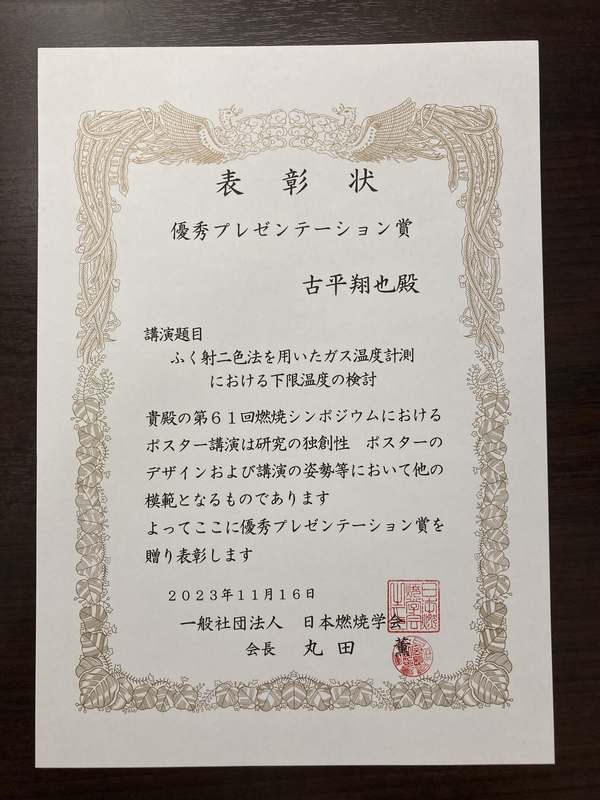 表彰状
優秀プレゼンテーション賞
古平翔也殿
講演題目
ふく射二色法を用いたガス温度計測
における下限温度の検討
貴殿の第61回燃焼シンポジウムにおける
ポスター講演は研究の独創性　ポスターの
デザインおよび講演の姿勢等において他の
模範となるものであります
よってここに優秀プレゼンテーション賞を
贈り表彰します
2023年11月16日
一般社団法人　日本燃焼学会
会長　丸田　薫
日本燃
焼学会
之印